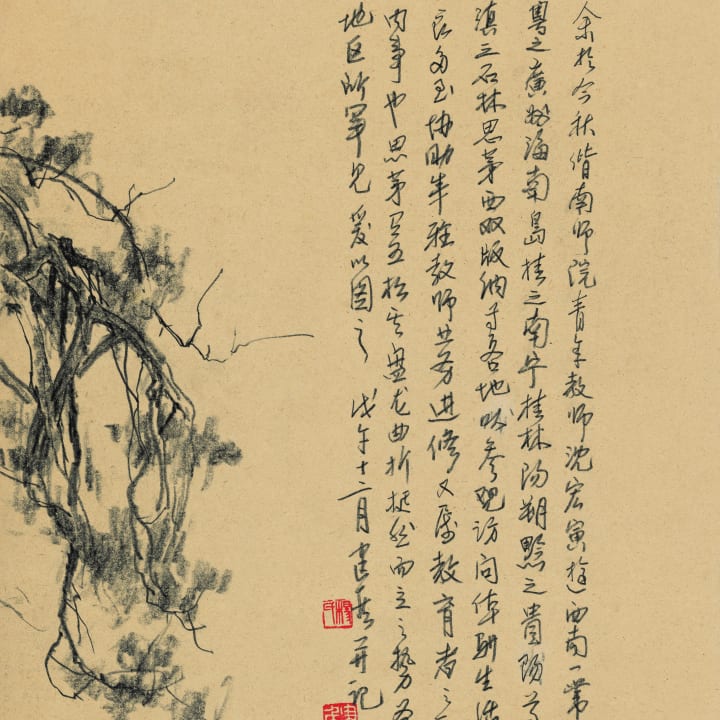 余於今秋偕南师院青年教师沈宏寅遊西南一带
粤之廣州海南島桂之南宁桂林阳朔黔之貴阳等
滇之石林思茅西双版納等各地或参观访问体驗生活
良多至协助年轻教师业务进修又属教育者之
内事也思茅五松其盘龙曲折挺然而立之势为
地区所罕见爰以图之 戊午十二月建并记